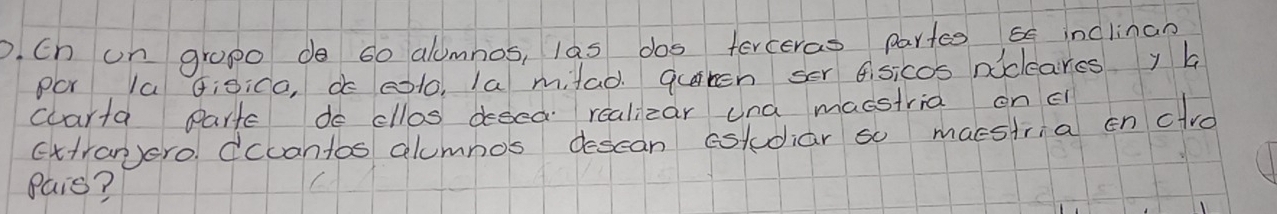 0. En un grupo de 60 alumnos, las dos terceras partes se inclinan
por la física, de esto, la mitad. quieren ser físicos nucleares y la
cuarta parte de ellos desea realizar una maestria en el
extranjero. ¿cuantos alumnos desean estudiar su maestria en otro
Pais?